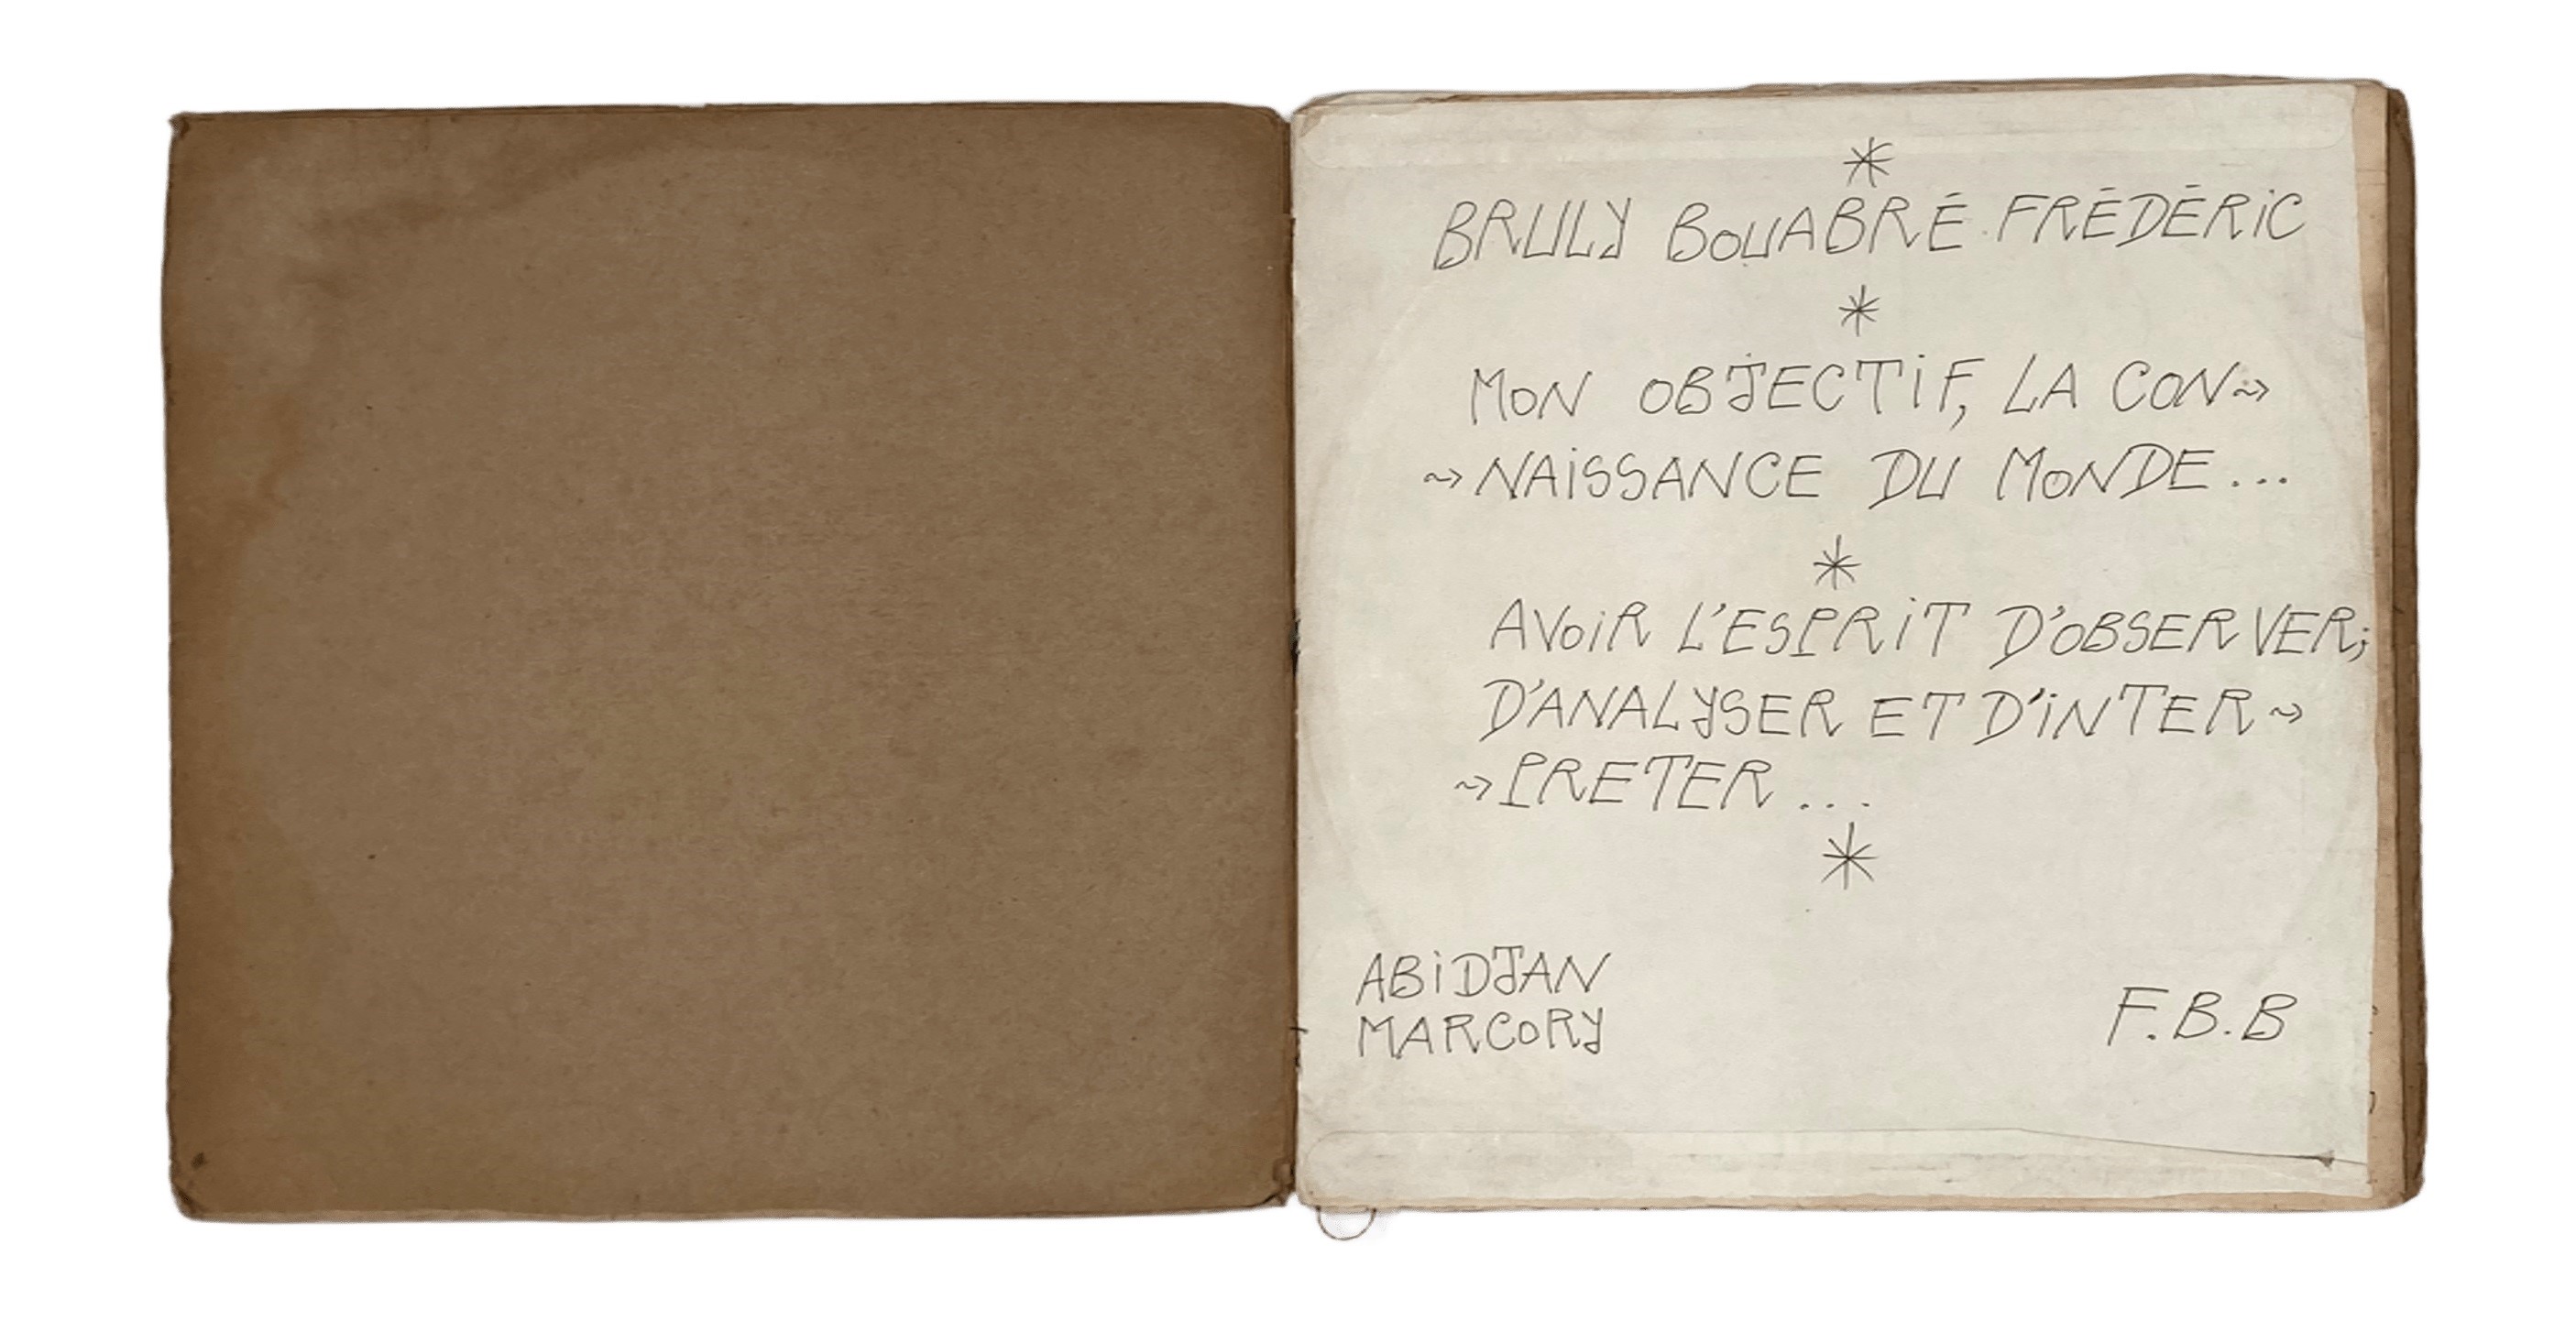 *
BRULY BOUABRÉ FRÉDÉRIC
*
MON OBJECTIF, LA CON~>
~>NAISSANCE DU MONDE...
*
AVOIR L'ESPRIT D'OBSERVER;
D'ANALYSER ET D'INTER~>
~>PRETER...
*
ABIDJAN
MARCORY
F.B.B